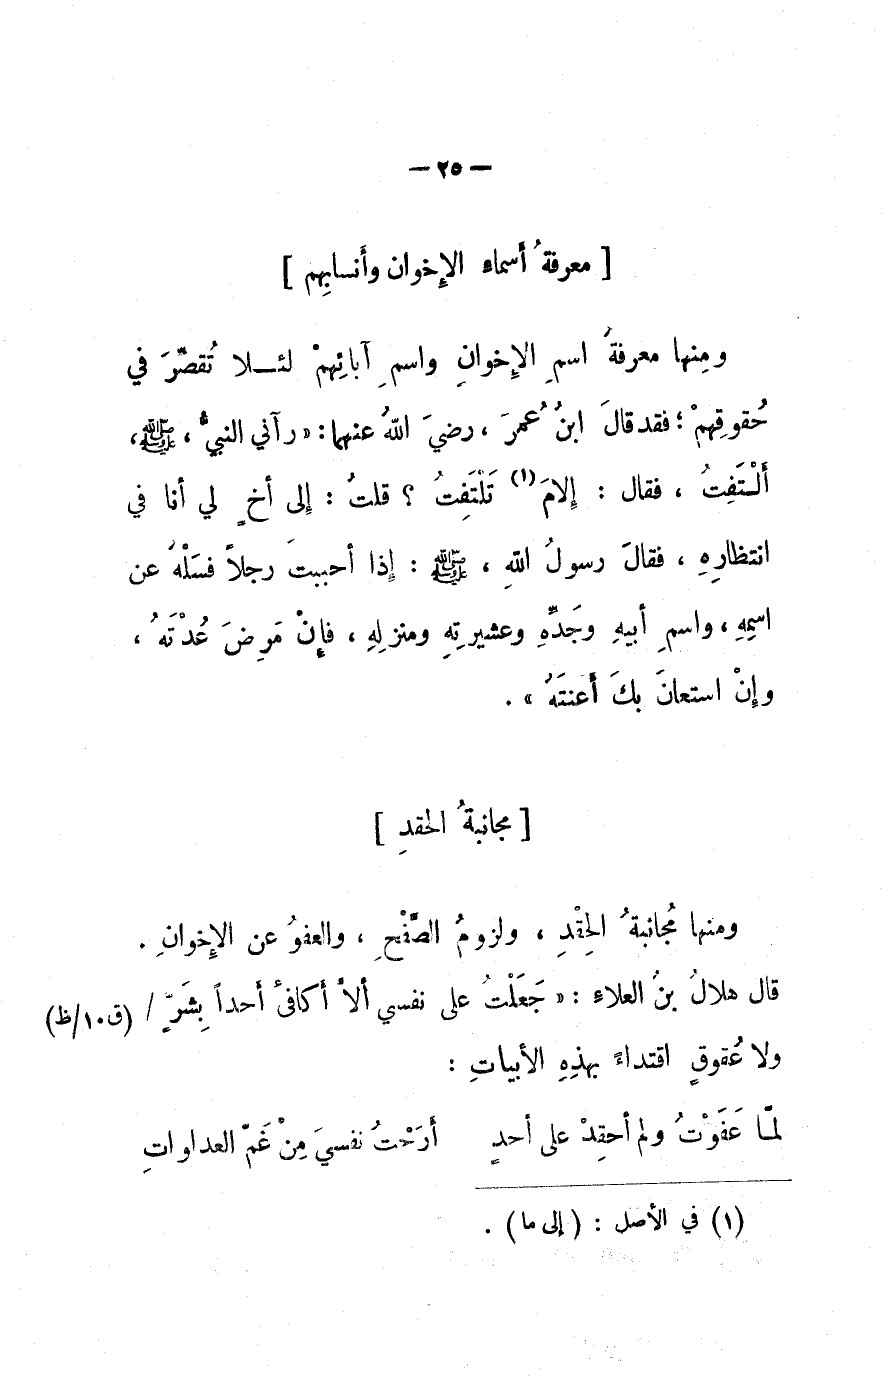 — ٢٥ —
[ معرفةُ أسماء الإِخوان وأَنسابِهم ]
ومِنها معرفةُ اسمِ الإِخوانِ واسمِ آبائِهمْ لئـــلا تُقصّرَ في
حُقوقِهمْ ؛ فقد قالَ ابنُ عُمرَ ، رضيَ اللهُ عنهما : « رآني النبيُّ ، ﷺ ،
أَلْتَفِتُ ، فقال : إِلامَ (١) تَلْتَفِتُ ؟ قلتُ : إلى أخٍ لي أنا في
انتظارِهِ ، فقالَ رسولُ اللهِ ، ﷺ : إِذا أحببتَ رجلاً فسَلْهُ عن
اسمِهِ ، واسمِ أبيهِ وجَدِّهِ وعشيرتِهِ ومنزلِهِ ، فإِنْ مَرِضَ عُدْتَهُ ،
وإِنْ استعانَ بكَ أَعنتَهُ » .
[ مجانبةُ الحقدِ ]
ومنها مُجانبةُ الحِقْدِ ، ولزومُ الصَّفْحِ ، والعفوُ عن الإِخوانِ .
قال هلالُ بنُ العلاءِ : « جَعَلْتُ على نفسي ألاَّ أكافئَ أحداً بِشَرٍّ / (ق١٠/ظ)
ولا عُقوقٍ اقتداءً بهذِهِ الأبياتِ :
لمّا عَفَوْتُ ولم أحقِدْ على أحدٍ أَرَحْتُ نفسيَ مِنْ غَمّ العداواتِ
(١) في الأصل : ( إلى ما ) .